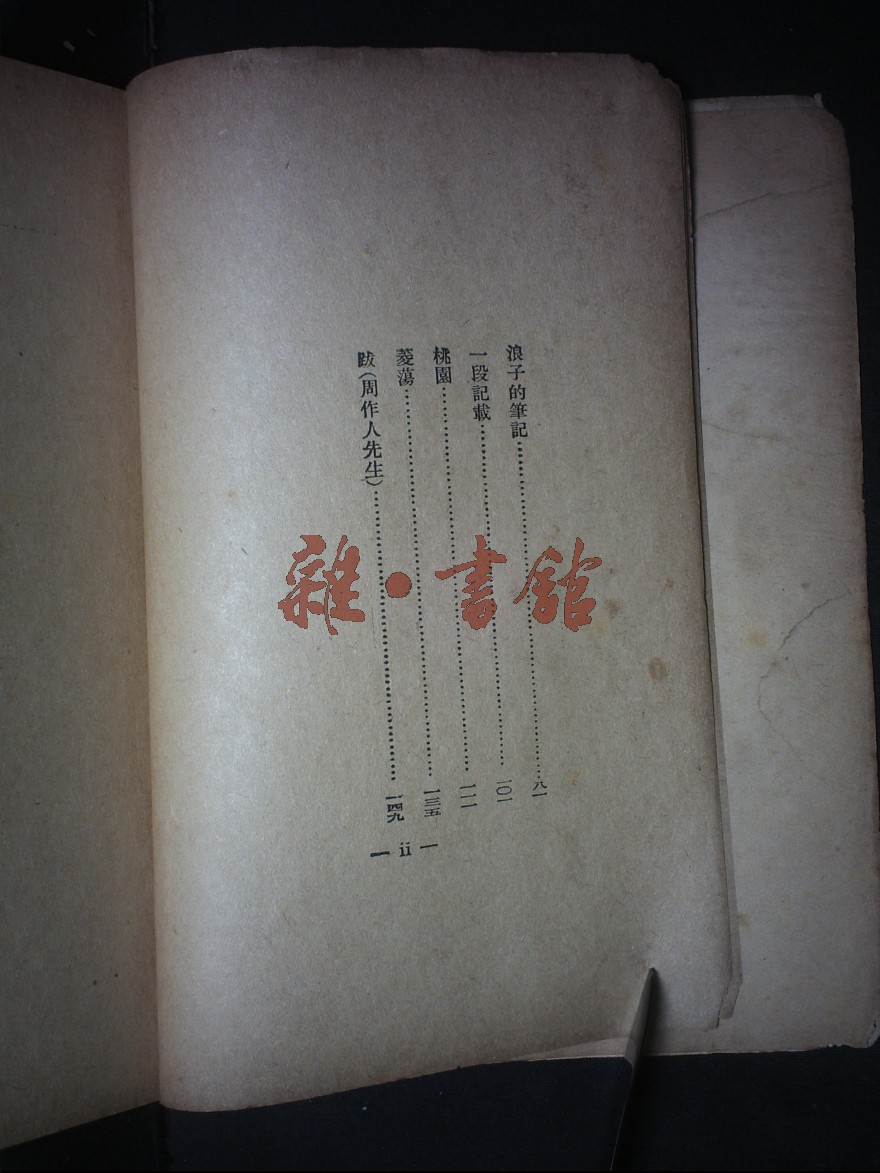 浪子的筆記……八一
一段記載……一〇一
桃園……一一一
菱蕩……一三五
跋（周作人先生）……一四九
— ii —
雜・書館